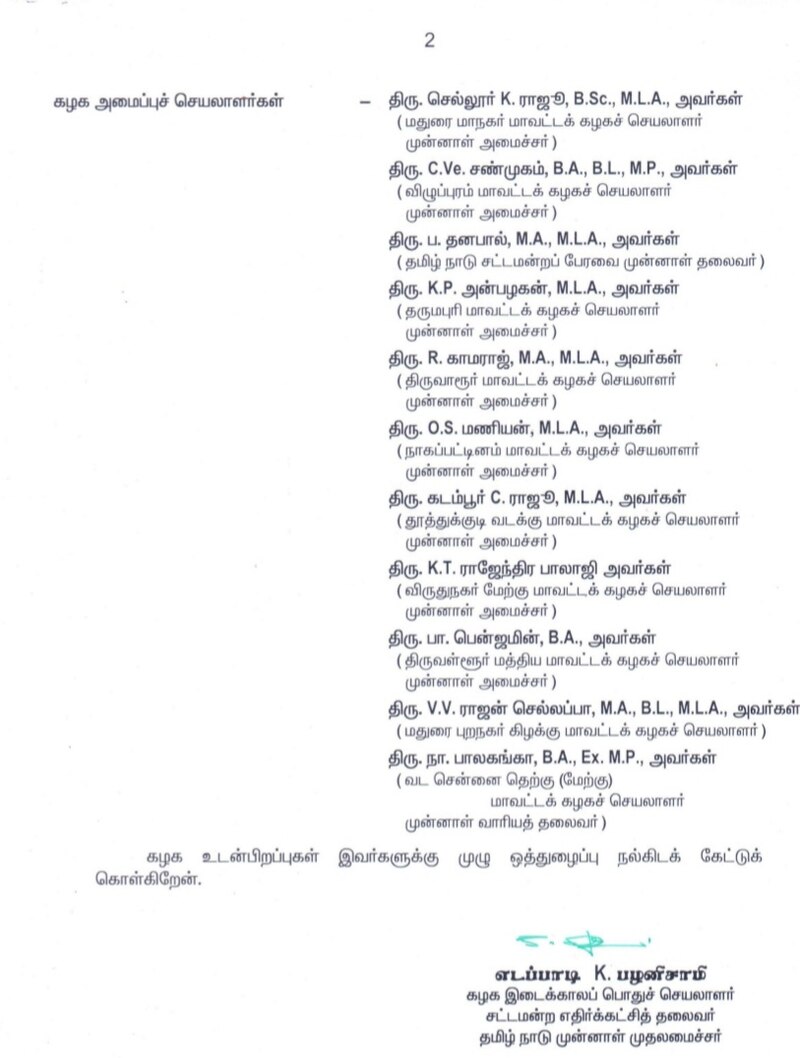 2
கழக அமைப்புச் செயலாளர்கள் – திரு. செல்லூர் K. ராஜூ, B.Sc., M.L.A., அவர்கள்
( மதுரை மாநகர் மாவட்டக் கழகச் செயலாளர்
முன்னாள் அமைச்சர் )
திரு. C.Ve. சண்முகம், B.A., B.L., M.P., அவர்கள்
( விழுப்புரம் மாவட்டக் கழகச் செயலாளர்
முன்னாள் அமைச்சர் )
திரு. ப. தனபால், M.A., M.L.A., அவர்கள்
( தமிழ் நாடு சட்டமன்றப் பேரவை முன்னாள் தலைவர் )
திரு. K.P. அன்பழகன், M.L.A., அவர்கள்
( தருமபுரி மாவட்டக் கழகச் செயலாளர்
முன்னாள் அமைச்சர் )
திரு. R. காமராஜ், M.A., M.L.A., அவர்கள்
( திருவாரூர் மாவட்டக் கழகச் செயலாளர்
முன்னாள் அமைச்சர் )
திரு. O.S. மணியன், M.L.A., அவர்கள்
( நாகப்பட்டினம் மாவட்டக் கழகச் செயலாளர்
முன்னாள் அமைச்சர் )
திரு. கடம்பூர் C. ராஜூ, M.L.A., அவர்கள்
( தூத்துக்குடி வடக்கு மாவட்டக் கழகச் செயலாளர்
முன்னாள் அமைச்சர் )
திரு. K.T. ராஜேந்திர பாலாஜி அவர்கள்
( விருதுநகர் மேற்கு மாவட்டக் கழகச் செயலாளர்
முன்னாள் அமைச்சர் )
திரு. பா. பென்ஜமின், B.A., அவர்கள்
( திருவள்ளூர் மத்திய மாவட்டக் கழகச் செயலாளர்
முன்னாள் அமைச்சர் )
திரு. V.V. ராஜன் செல்லப்பா, M.A., B.L., M.L.A., அவர்கள்
( மதுரை புறநகர் கிழக்கு மாவட்டக் கழகச் செயலாளர் )
திரு. நா. பாலகங்கா, B.A., Ex. M.P., அவர்கள்
( வட சென்னை தெற்கு (மேற்கு)
மாவட்டக் கழகச் செயலாளர்
முன்னாள் வாரியத் தலைவர் )
கழக உடன்பிறப்புகள் இவர்களுக்கு முழு ஒத்துழைப்பு நல்கிடக் கேட்டுக்
கொள்கிறேன்.
எடப்பாடி K. பழனிசாமி
கழக இடைக்காலப் பொதுச் செயலாளர்
சட்டமன்ற எதிர்க்கட்சித் தலைவர்
தமிழ் நாடு முன்னாள் முதலமைச்சர்